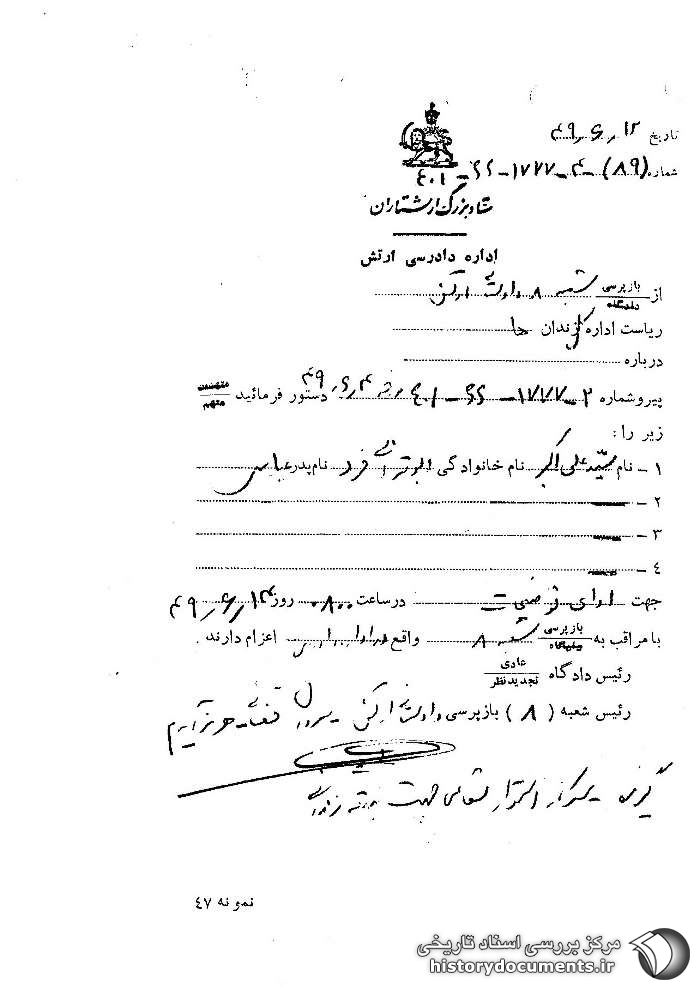 تاریخ ۱۲ر۶ر۴۹
شماره (۸۹)-۴-۱۷۷۷-۶۶-۴۰۱
ستاد بزرگ ارتشتاران
اداره دادرسی ارتش
از بازپرسی دادگاه شعبه ۸ دادستانی ارتش
ریاست اداره کل زندان ها
درباره
پیرو شماره ۲-۱۷۷۷-۶۶-۴۰۱ ۴۹ دستور فرمائید متهمین متهم
زیر را:
۱- نام سید علی اکبر نام خانوادگی ابوترابی فرد نام پدر عباس
۲-
۳-
٤-
جهت ادای توضیحات در ساعت ۰۸۰۰ روز ۱۴ر۶ر۴۹
با مراقب به بازپرسی دادگاه شعبه ۸ واقع در اداره دادرسی اعزام دارند.
رئیس دادگاه عادی تجدیدنظر
رئیس شعبه (۸) بازپرسی دادستانی ارتش
گیرنده جهت
نمونه ٤٧
مرکز بررسی اسناد تاریخی
historydocuments.ir